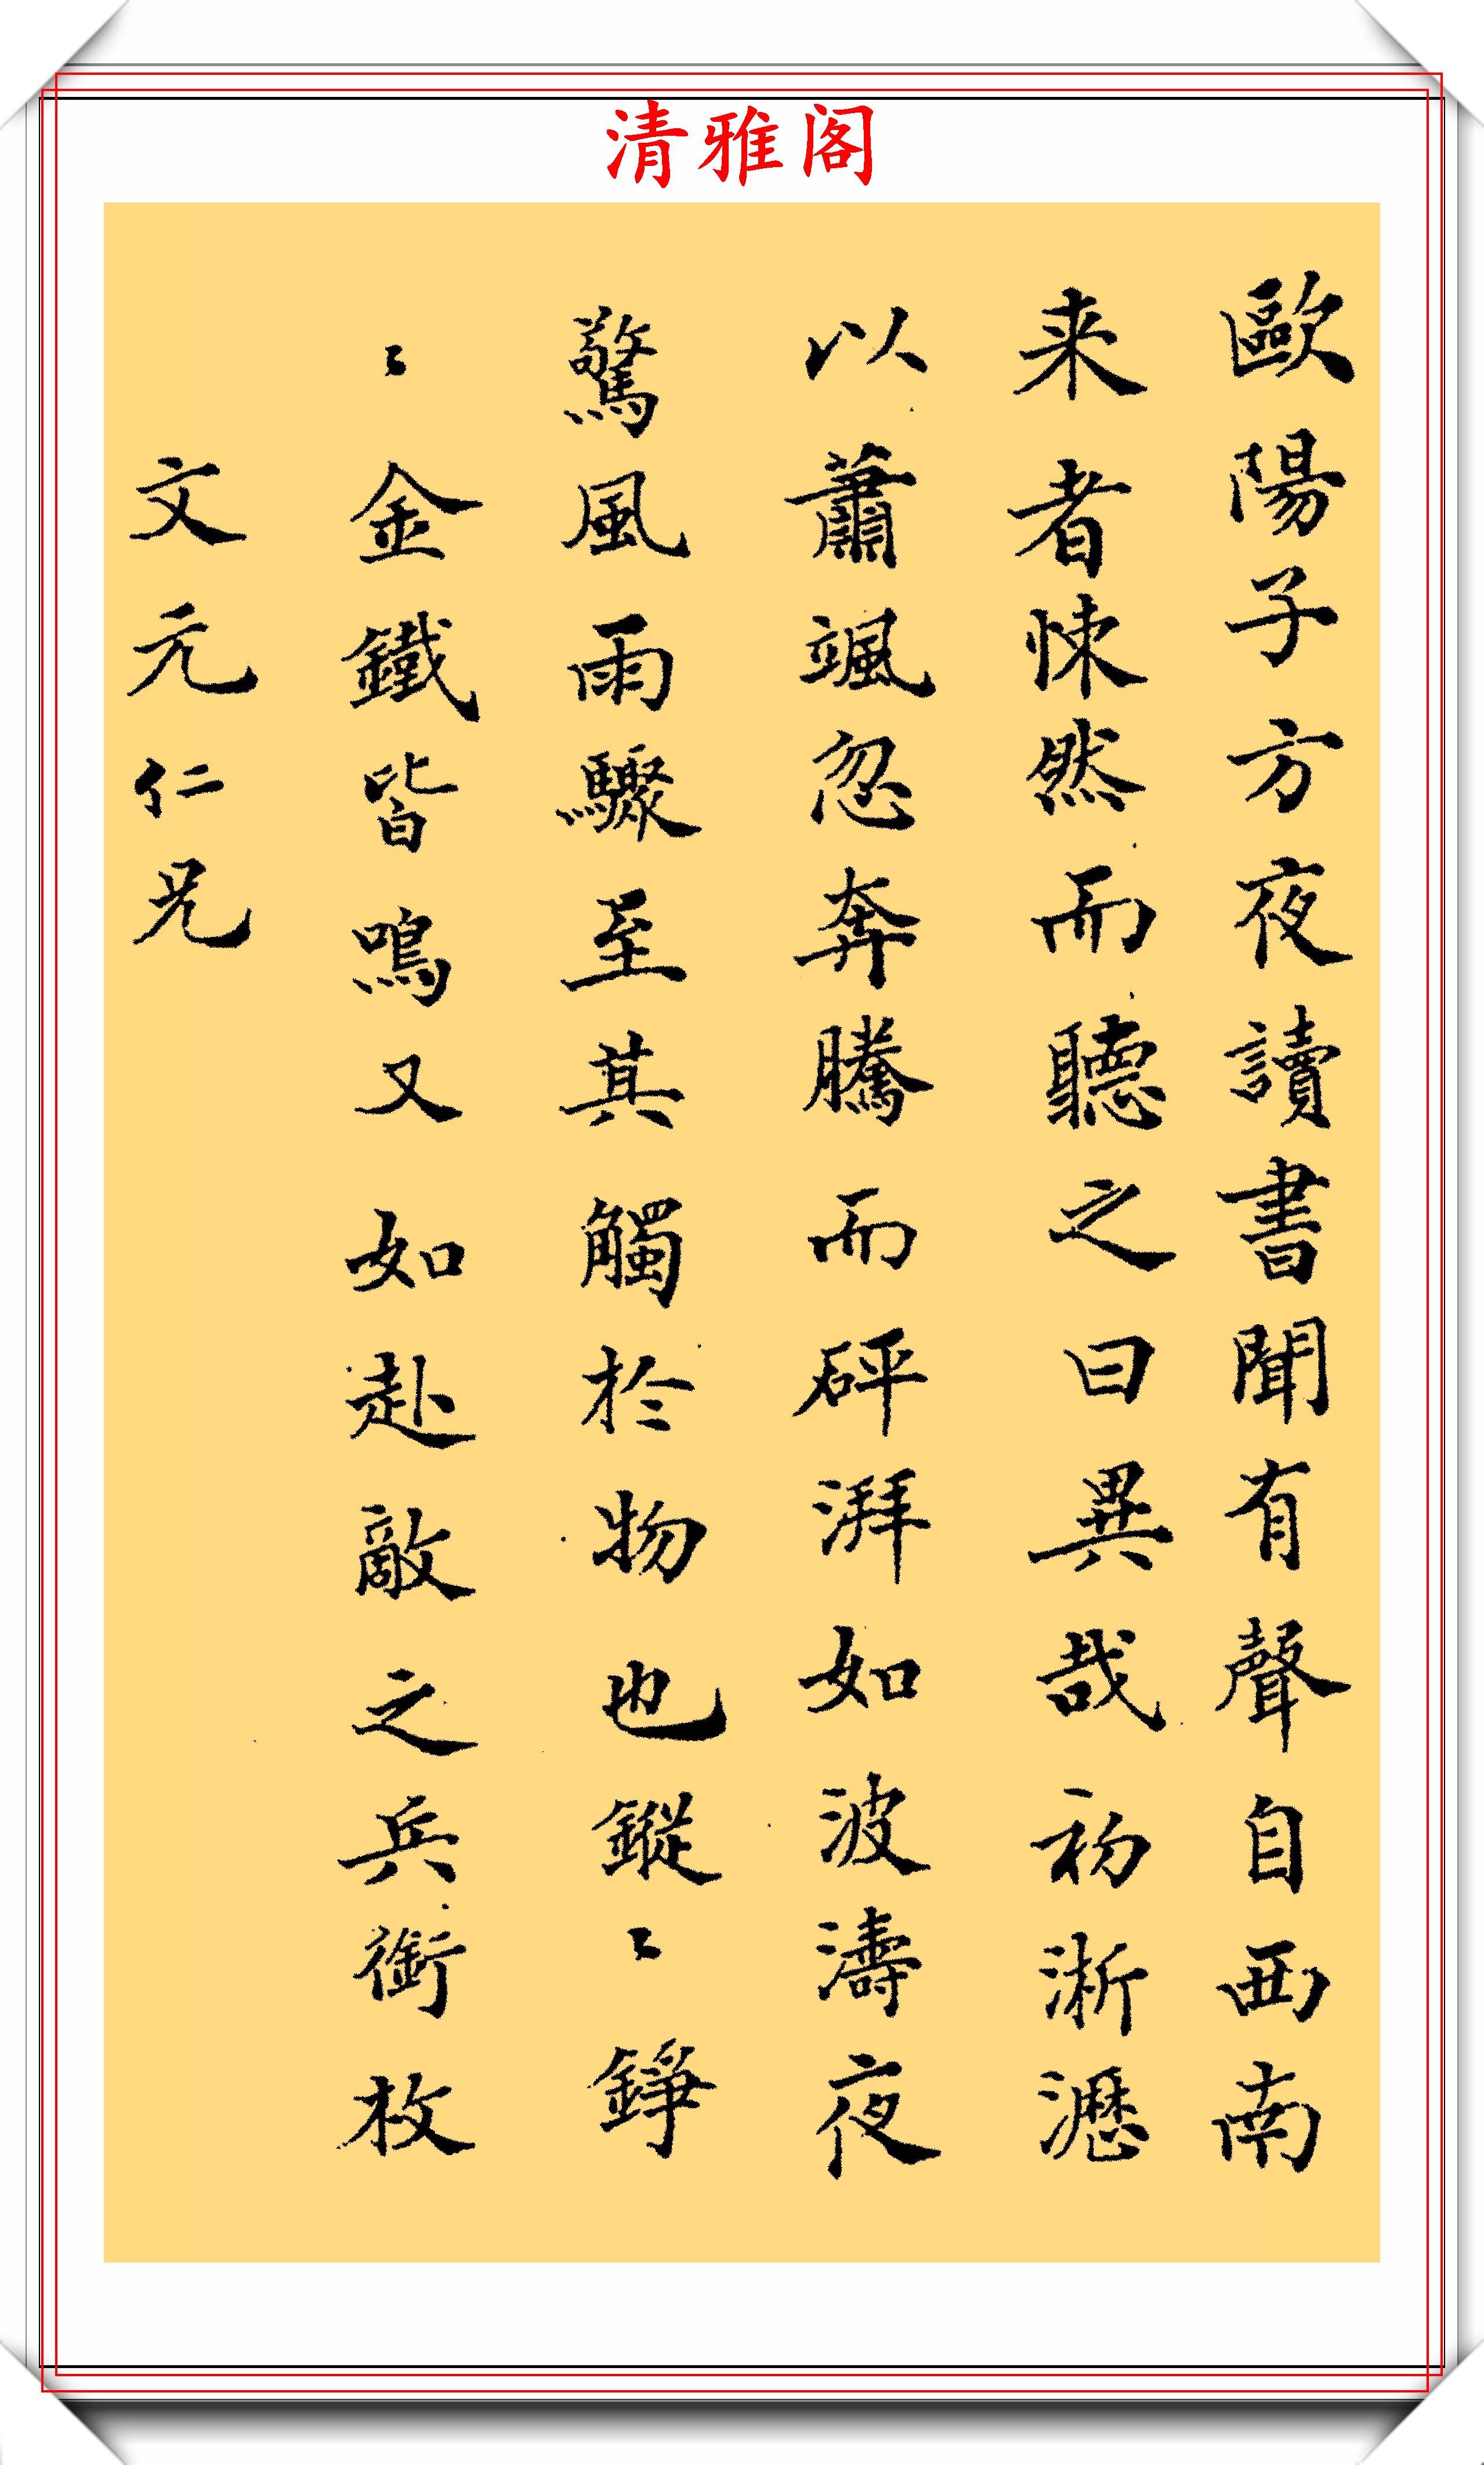 清雅阁
歐陽子方夜讀書聞有聲自西南
来者悚然而聽之曰異哉初淅瀝
以蕭颯忽奔騰而砰湃如波濤夜
驚風雨驟至其觸於物也鏦〻錚
〻金鐵皆鳴又如赴敵之兵銜枚
文元仁兄